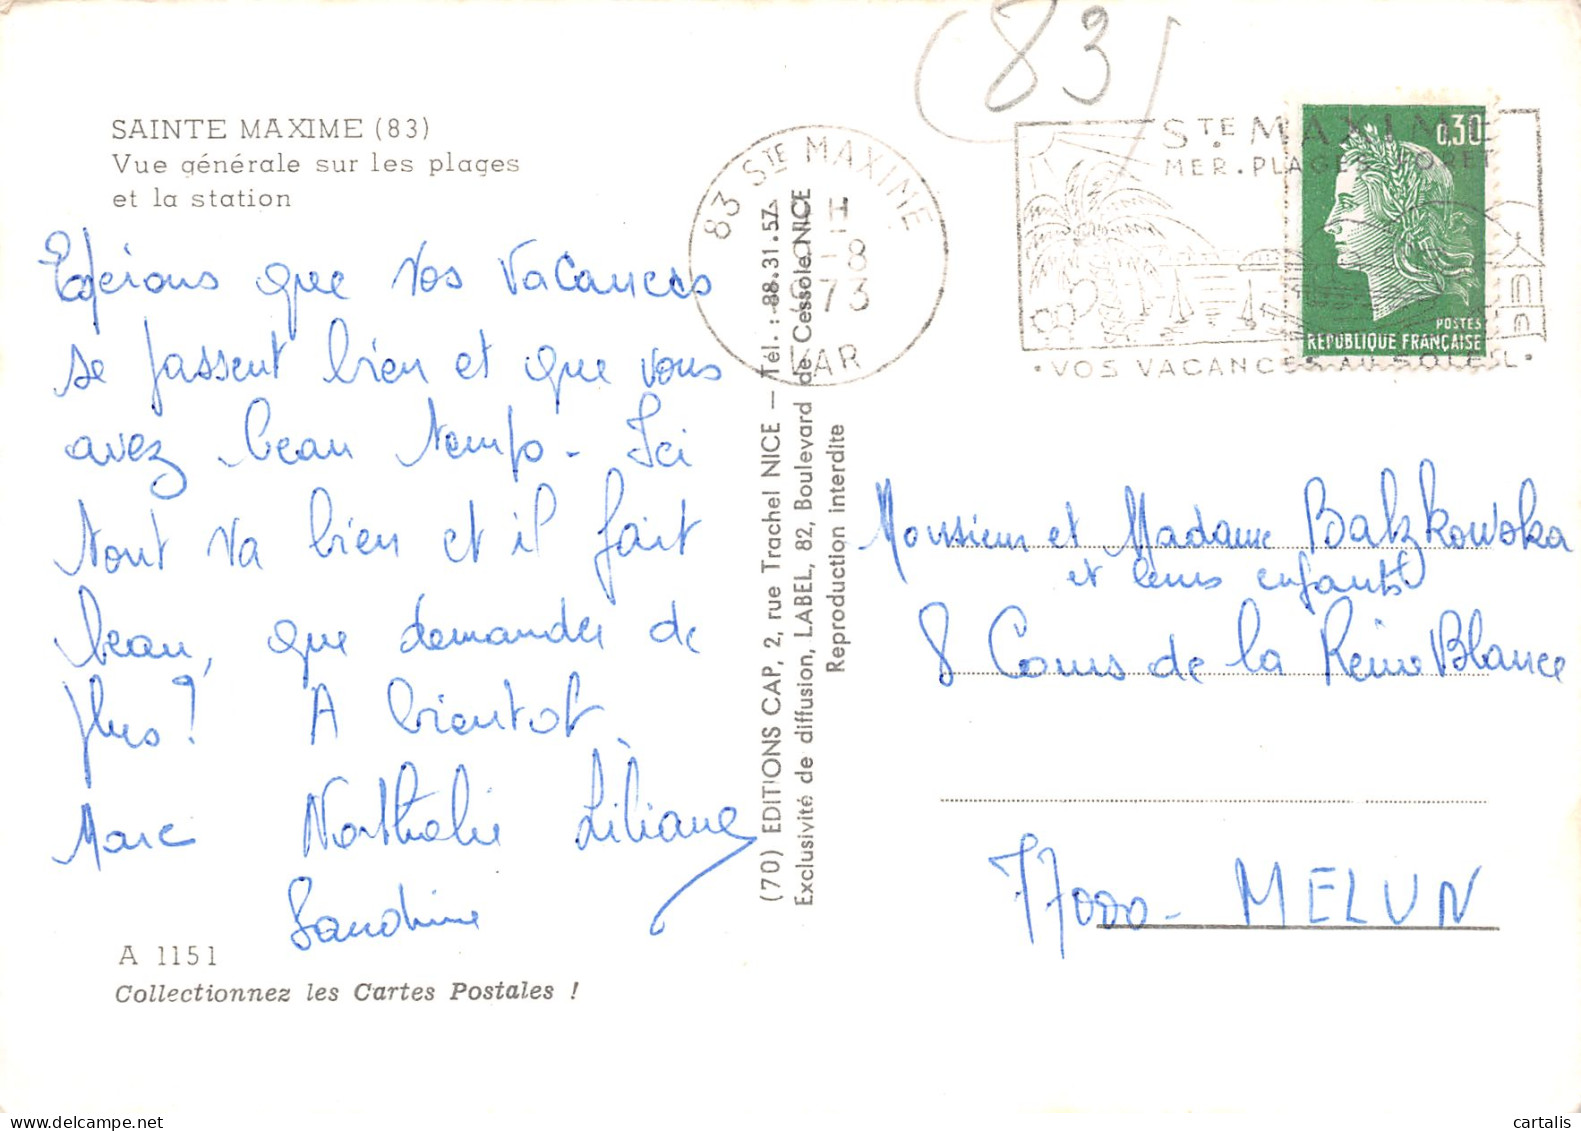 (83)
SAINTE MAXIME (83)
Vue générale sur les plages
et la station
Espérons que vos vacances
se passent bien et que vous
avez beau temps - Ici
tout va bien et il fait
beau, que demander de
plus? A bientot
Marc Nathalie Liliane
Sandrine
A 1151
Collectionnez les Cartes Postales !
(70) EDITIONS CAP, 2, rue Trachel NICE — Tél. : 88.31.57
Exclusivité de diffusion, LABEL, 82, Boulevard de Cessole NICE
Reproduction interdite
83 STE MAXIME
H
-8
1973
VAR
STE MAXIME
MER. PLAGES. FORET
• VOS VACANCES AU SOLEIL •
0,30
POSTES
REPUBLIQUE FRANÇAISE
Monsieur et Madame Balzkowska
et leurs enfants
8 Cours de la Reine Blance
77000 - MELUN
cartalis